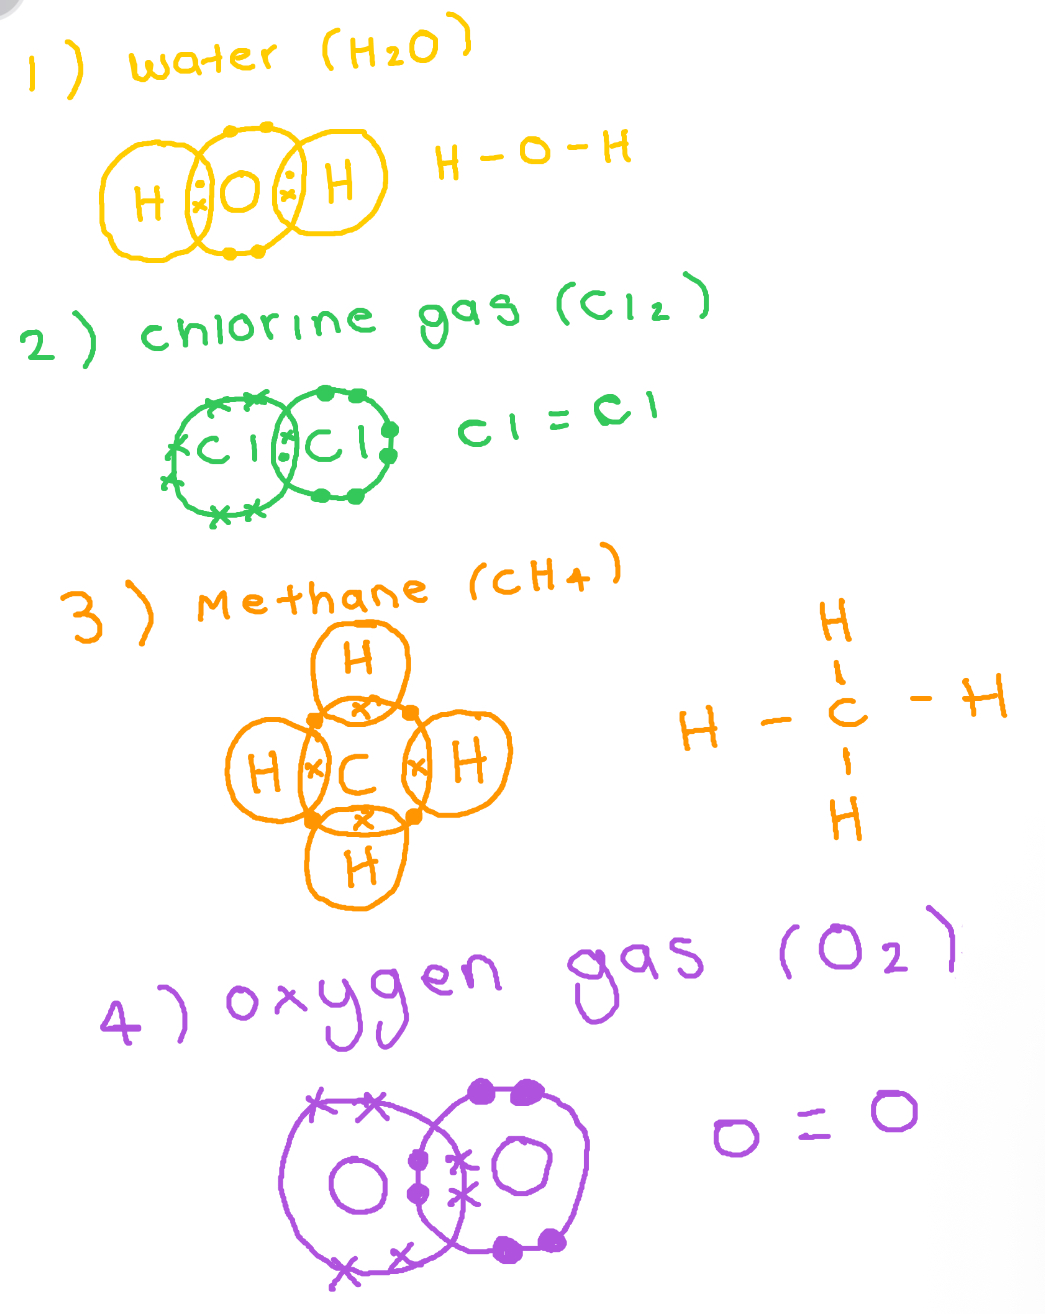 1) water (H2O)
H O H H - O - H
2) chlorine gas (Cl2)
Cl Cl Cl = Cl
3) Methane (CH4)
H
H C H
H
H
H - C - H
H
4) oxygen gas (O2)
O O O = O